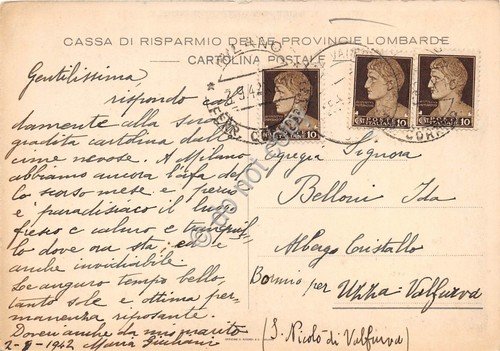 CASSA DI RISPARMIO DELLE PROVINCIE LOMBARDE
CARTOLINA POSTALE
MILANO
2-9.42
FERR. CORR.
10
10
10
Gentilissima
rispondo cal
damente alla sua
gradita cartolina dalle
cime nevose. A Milano
abbiamo ancora l'afa del
lo scorso mese e perciò
è paradisiaco il luogo
fresco e calmo e tranquil
lo dove ora sta, ed è
anche invidiabile.
Le auguro tempo bello,
tanto sole e ottima per,
manenza riposante.
Doveri anche da mio marito
2-9-1942 Maria Giuliani
Egregia Signora
Belloni Ida
Albergo Cristallo
Bormio per Uzza Valfurva
(S. Nicolò di Valfurva)
do not copy